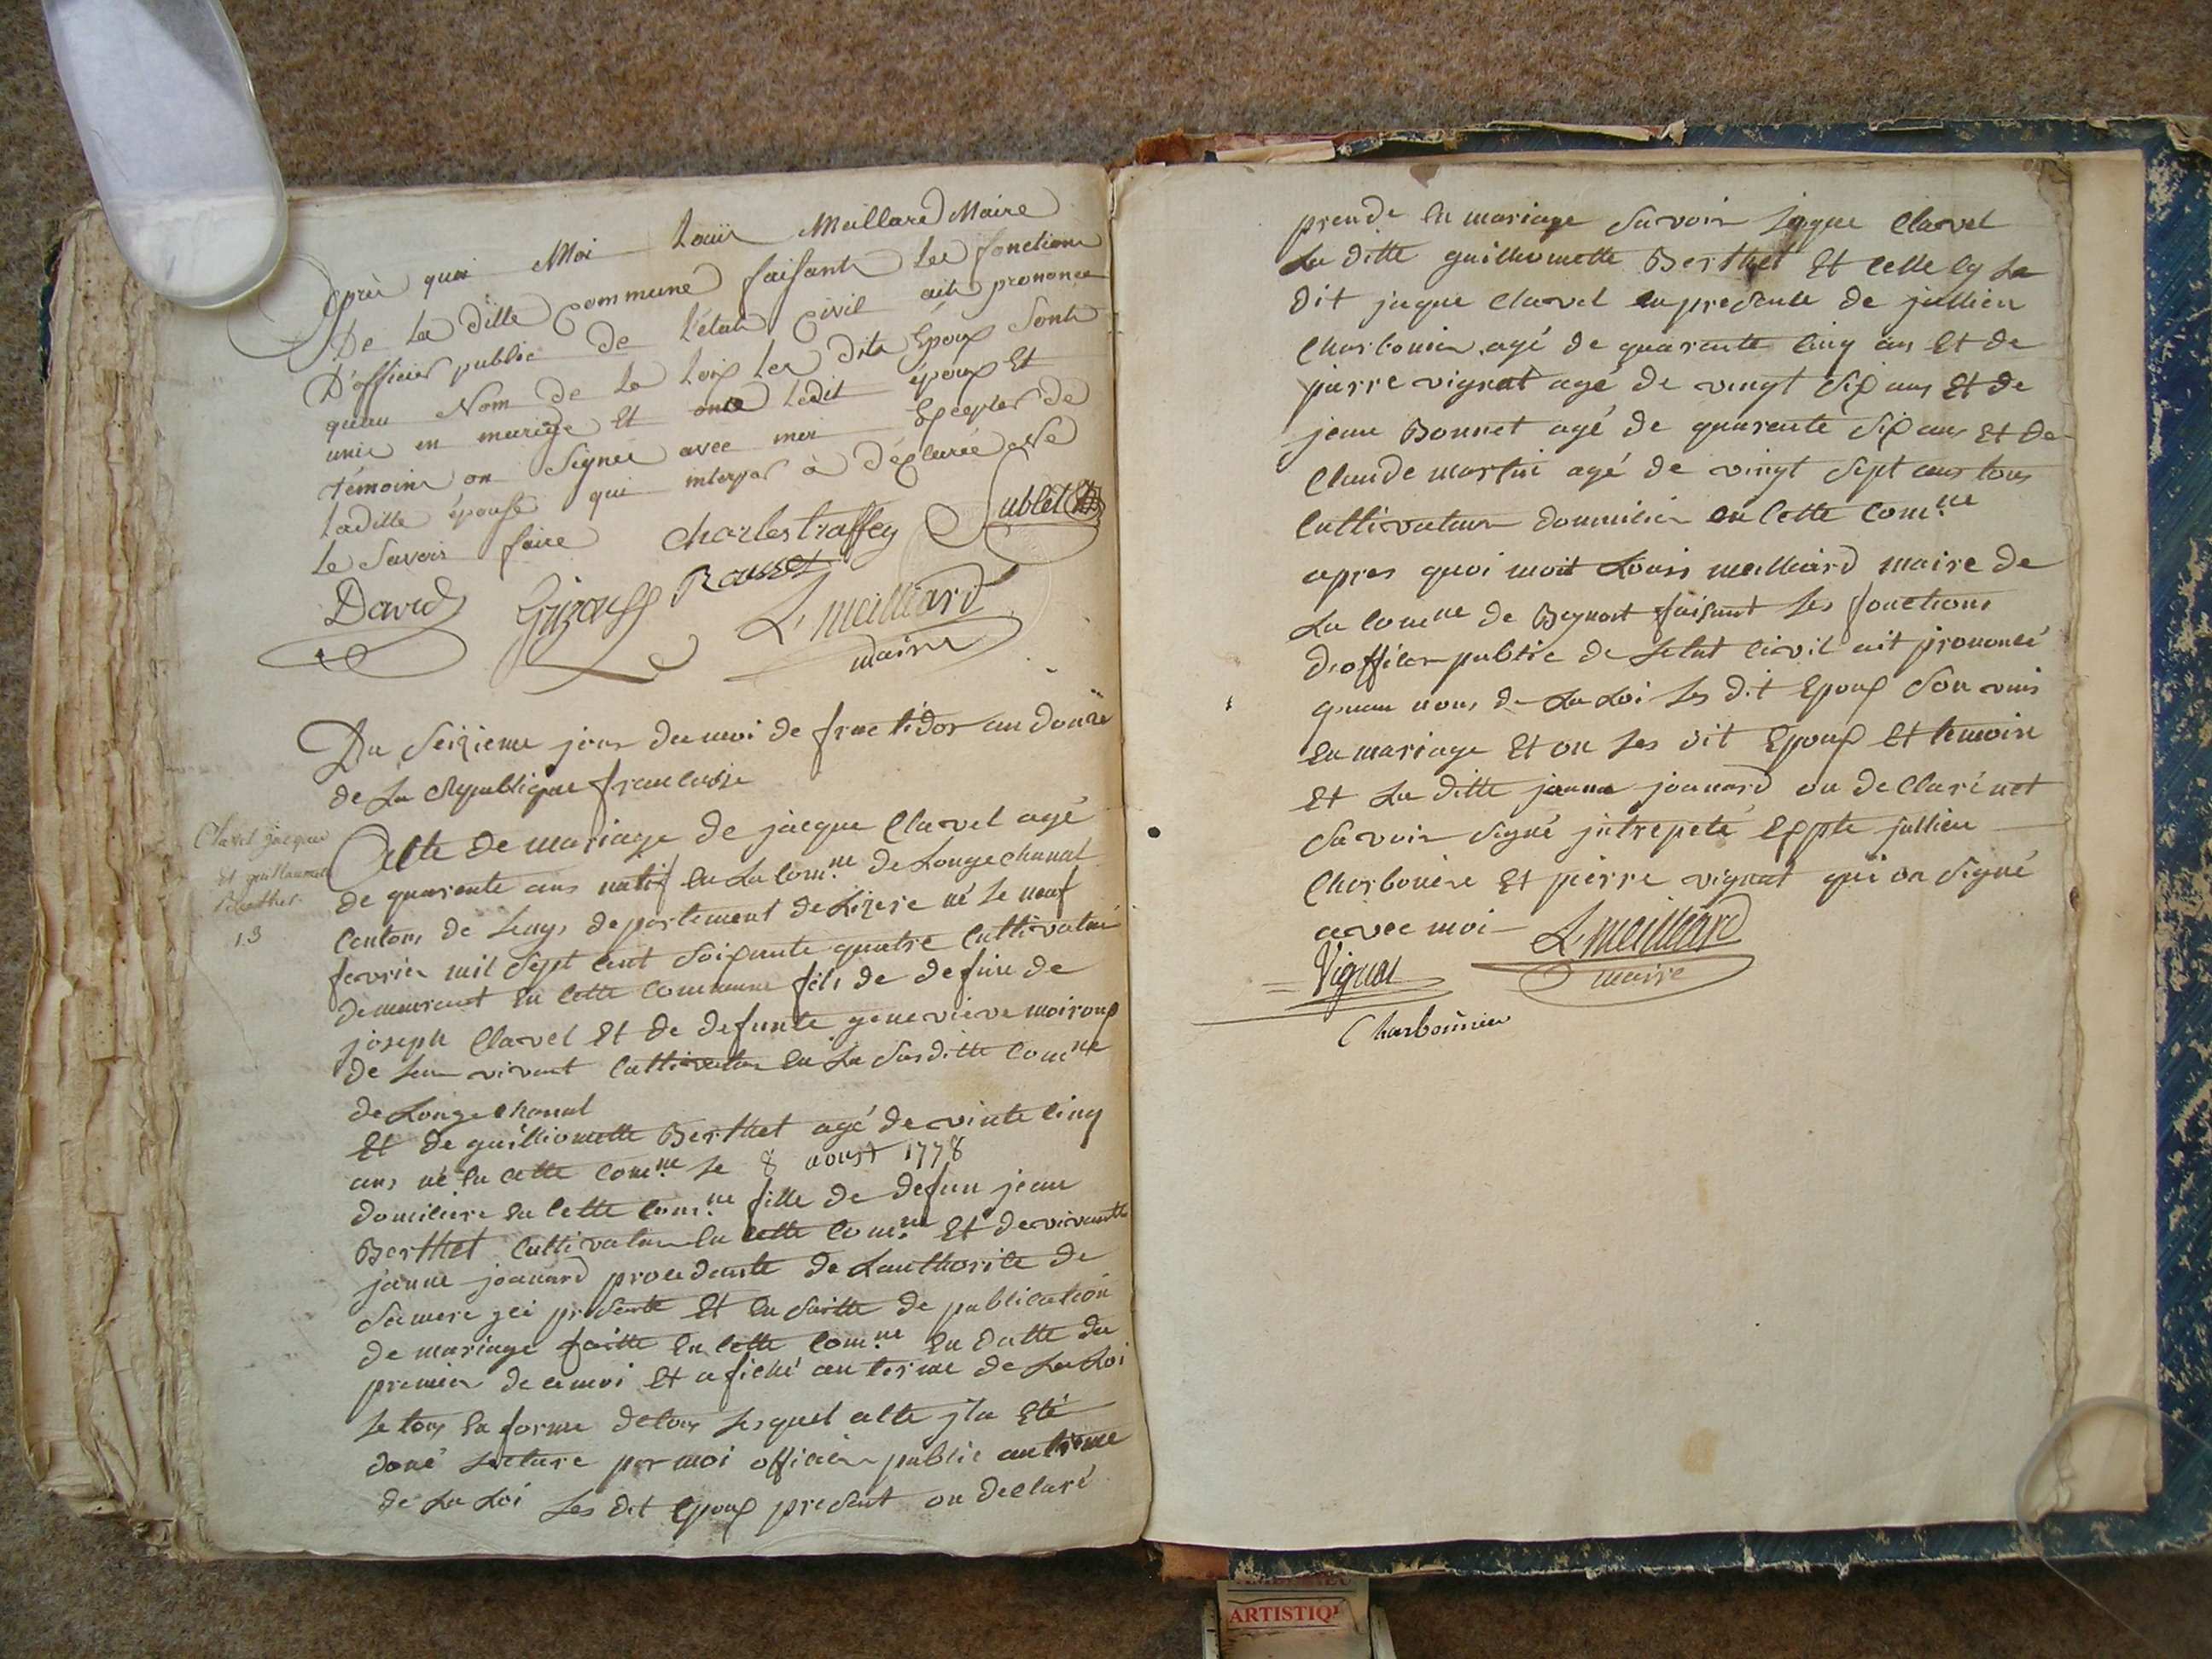 Après quoi Moi Louïs Meillard Maire
De La ditte Commune faisant Les fonctions
D'officier public de L'état Civil ait prononcé
qu'au Nom de La Loix Les dits Époux Sont
unis en mariage Et ont Ledit époux Et
témoins on Signés avec moi Excepter de
Laditte épouse qui interper à déclarée Ne
Le Savoir faire Charles traffey Sublet
David Rousset
L. Meilliard
maire
Du Seizieme jour du moi de fructidor an douze
de La Republique francaise
Clavel jacque
et guillaumette
Berthet
13
Acte de mariage de jacque Clavel agé
de quarente ans natif en La Com.ne de Longechanal
Canton de Lenps departement de Lizere né Le neuf
fevrier mil Sept Cent Soixante quatre Cultivateur
demeurant en Cette Commune fils de defun de
joseph Clavel Et de defunte genevieve moiroux
de Leur vivant Cultivateur en La Sus ditte Comne
de Longechanal
Et de guillionette Berthet agé de vinte Cinq
ans né en Cette Com.ne Le 8 aoust 1778
domiciliere en Cette Com.ne fille de defun jean
Berthet Cultivateur en Cette Com.ne Et de vivante
janne joanard procedante de Lauthorite de
Samere jci presente Et en Suitte de publication
de mariage faitte en Cette Com.ne en datte du
premier de ce moi Et afiché au terme de La Loi
Le tous en forme de tous Lesquel atte j'la Eté
doné Lecture par moi officier public au terme
de La Loi Les dit Epoux present on declaré
prendre en mariage Savoir Jaque Clavel
La ditte guilliomette Berthet Et Celle Cy Le
dit jaque Clavel en presence de jullien
Charbonier agé de quarente Cinq ans Et de
pierre vignat agé de vingt Six ans Et de
jean Bonnet agé de quarente Six ans Et de
Claude martin agé de vingt Sept ans tous
Cultivateur domicilier en Cette Com.ne
apres quoi moit Louis meilliard maire de
La Comne de Beynost faisant Les fonctions
dofficier public de Letat Civil ait prononcé
quau nom de La Loi Les dit Epoux Son unis
en mariage Et on Les dit Epoux Et temoin
Et La ditte janne joanard on de Claré net
Savoir Signé jntrepeté Exspte jullien
Charbonière Et pierre vignat qui on Signé
avec moi L. Meilliard
maire
Vignat
Charbonnier
ARTISTIQ